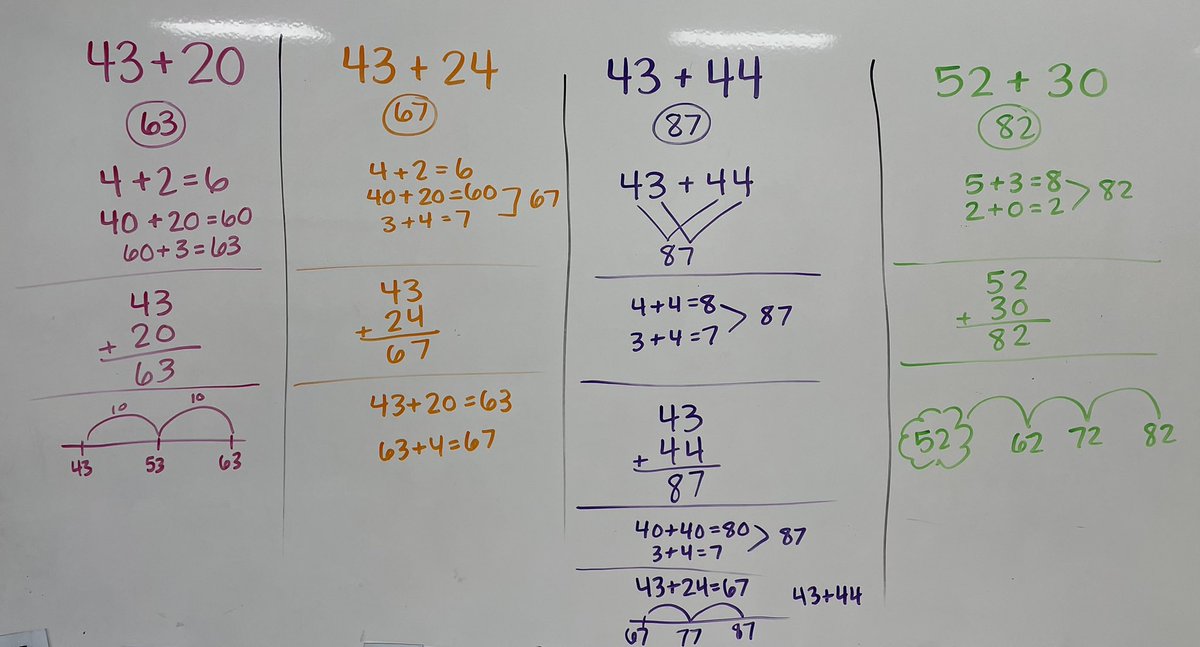 43+20
63
4+2=6
40+20=60
60+3=63
43
+ 20
63
10 10
43 53 63
43+24
67
4+2=6
40+20=60
3+4=7
67
43
+ 24
67
43+20=63
63+4=67
43+44
87
43+44
87
4+4=8
3+4=7
87
43
+ 44
87
40+40=80
3+4=7
87
43+24=67
43+44
67 77 87
52+30
82
5+3=8
2+0=2
82
52
+ 30
82
52 62 72 82